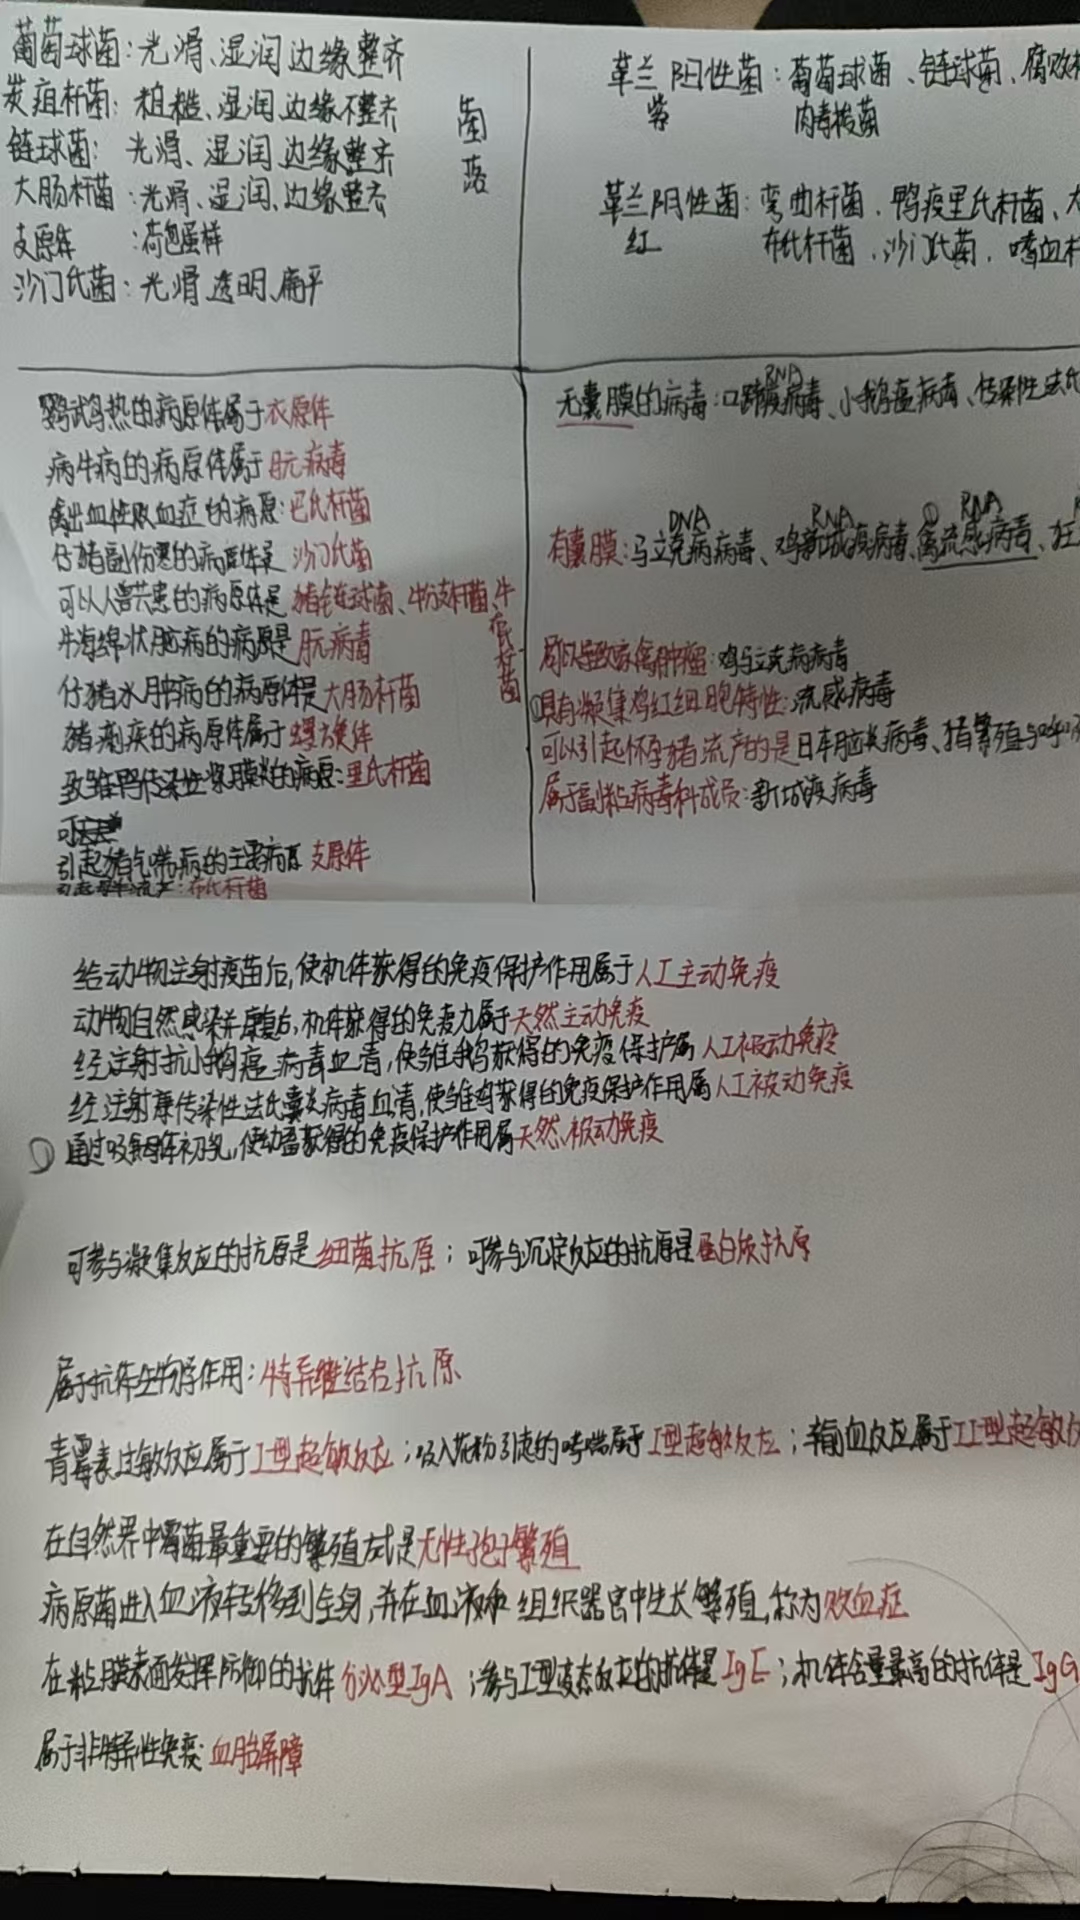 葡萄球菌：光滑、湿润、边缘整齐
炭疽杆菌：粗糙、湿润、边缘不整齐
链球菌：光滑、湿润、边缘整齐
大肠杆菌：光滑、湿润、边缘整齐
支原体：荷包蛋样
沙门氏菌：光滑、透明、扁平
菌落
革兰阳性菌：葡萄球菌、链球菌、腐败
紫 肉毒梭菌
革兰阴性菌：弯曲杆菌、鸭疫里氏杆菌、大
红 布氏杆菌、沙门氏菌、嗜血杆
鹦鹉热的病原体属于衣原体
疯牛病的病原体属于朊病毒
禽出血性败血症的病原：巴氏杆菌
仔猪副伤寒的病原体是沙门氏菌
可以人兽共患的病原体是猪链球菌、牛分支杆菌、牛布氏杆菌
牛海绵状脑病的病原是朊病毒
仔猪水肿病的病原体是大肠杆菌
猪痢疾的病原体属于螺旋体
致雏鸭传染性浆膜炎的病原：里氏杆菌
引起猪气喘病的主要病原 支原体
流产：布氏杆菌
RNA
无囊膜的病毒：口蹄疫病毒、小鹅瘟病毒、传染性法氏
DNA RNA ① RNA
有囊膜：马立克病病毒、鸡新城疫病毒、禽流感病毒、狂
可以导致家禽肿瘤：鸡马立克病病毒
①具有凝集鸡红细胞特性：流感病毒
可以引起怀孕猪流产的是日本脑炎病毒、猪繁殖与呼吸
属于副粘病毒科成员：新城疫病毒
给动物注射疫苗后，使机体获得的免疫保护作用属于人工主动免疫
动物自然感染并康复后，机体获得的免疫力属于天然主动免疫
经注射抗小鹅瘟病毒血清，使雏鹅获得的免疫保护属人工被动免疫
经注射 传染性法氏囊炎病毒血清，使雏鸡获得的免疫保护作用属人工被动免疫
通过吸食母体初乳，使幼畜获得的免疫保护作用属天然被动免疫
可参与凝集反应的抗原是细菌抗原；可参与沉淀反应的抗原是蛋白质抗原
属于抗体生物学作用：特异性结合抗原
青霉素过敏反应属于I型超敏反应；吸入花粉引起的哮喘属于I型超敏反应；输血反应属于II型超敏反
在自然界中霉菌最重要的繁殖方式是无性孢子繁殖
病原菌进入血液转移到全身，并在血液和组织器官中生长繁殖，称为败血症
在粘膜表面发挥防御的抗体分泌型IgA；参与I型变态反应的抗体是IgE；机体含量最高的抗体是IgG
属于非特异性免疫：血胎屏障